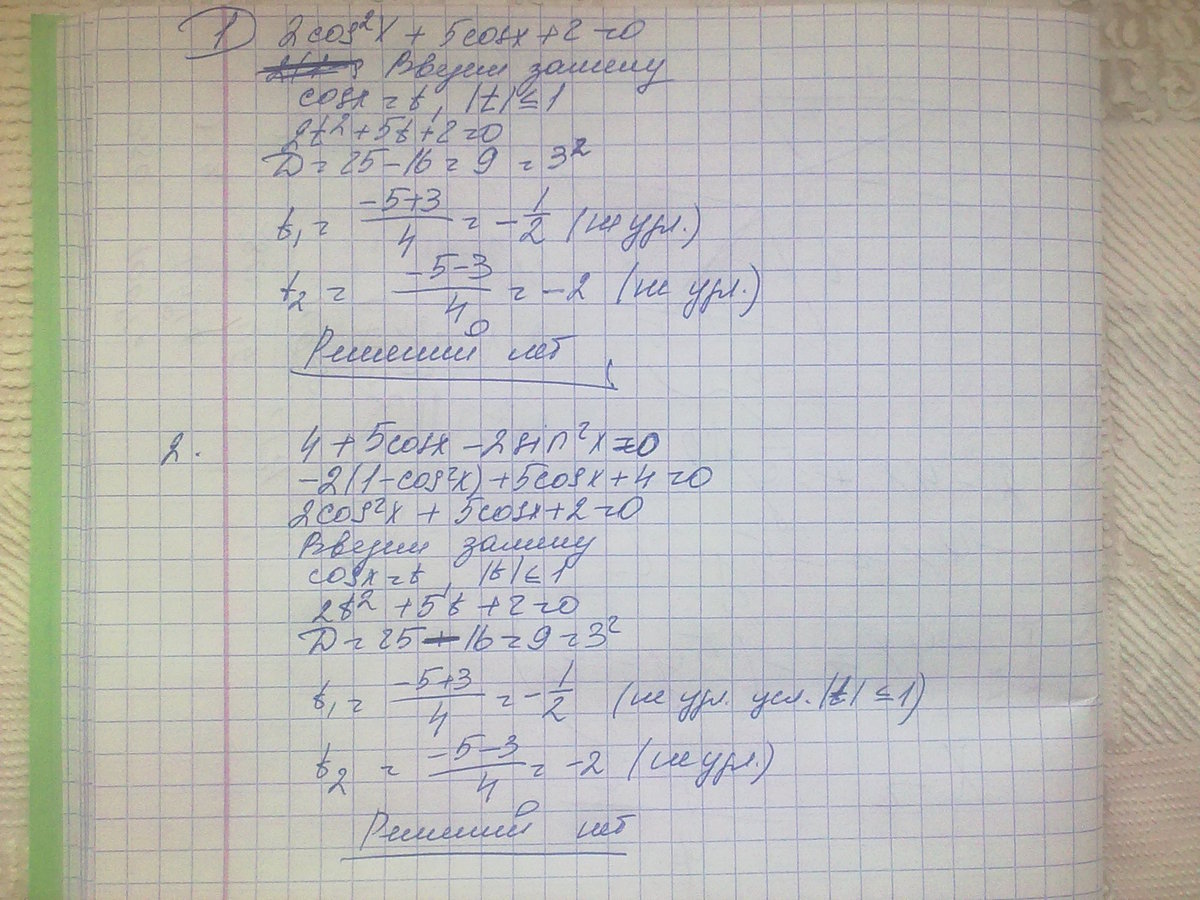 1) 2cos²x + 5cosx + 2 = 0
Введём замену
cosx = t, |t| ≤ 1
2t² + 5t + 2 = 0
D = 25 - 16 = 9 = 3²
t₁ = (-5+3)/4 = -1/2 (не удл.)
t₂ = (-5-3)/4 = -2 (не удл.)
Решений нет
2. 4 + 5cosx - 2sin²x = 0
-2(1-cos²x) + 5cosx + 4 = 0
2cos²x + 5cosx + 2 = 0
Введём замену
cosx = t, |t| ≤ 1
2t² + 5t + 2 = 0
D = 25 - 16 = 9 = 3²
t₁ = (-5+3)/4 = -1/2 (не удл. усл. |t| ≤ 1)
t₂ = (-5-3)/4 = -2 (не удл.)
Решений нет